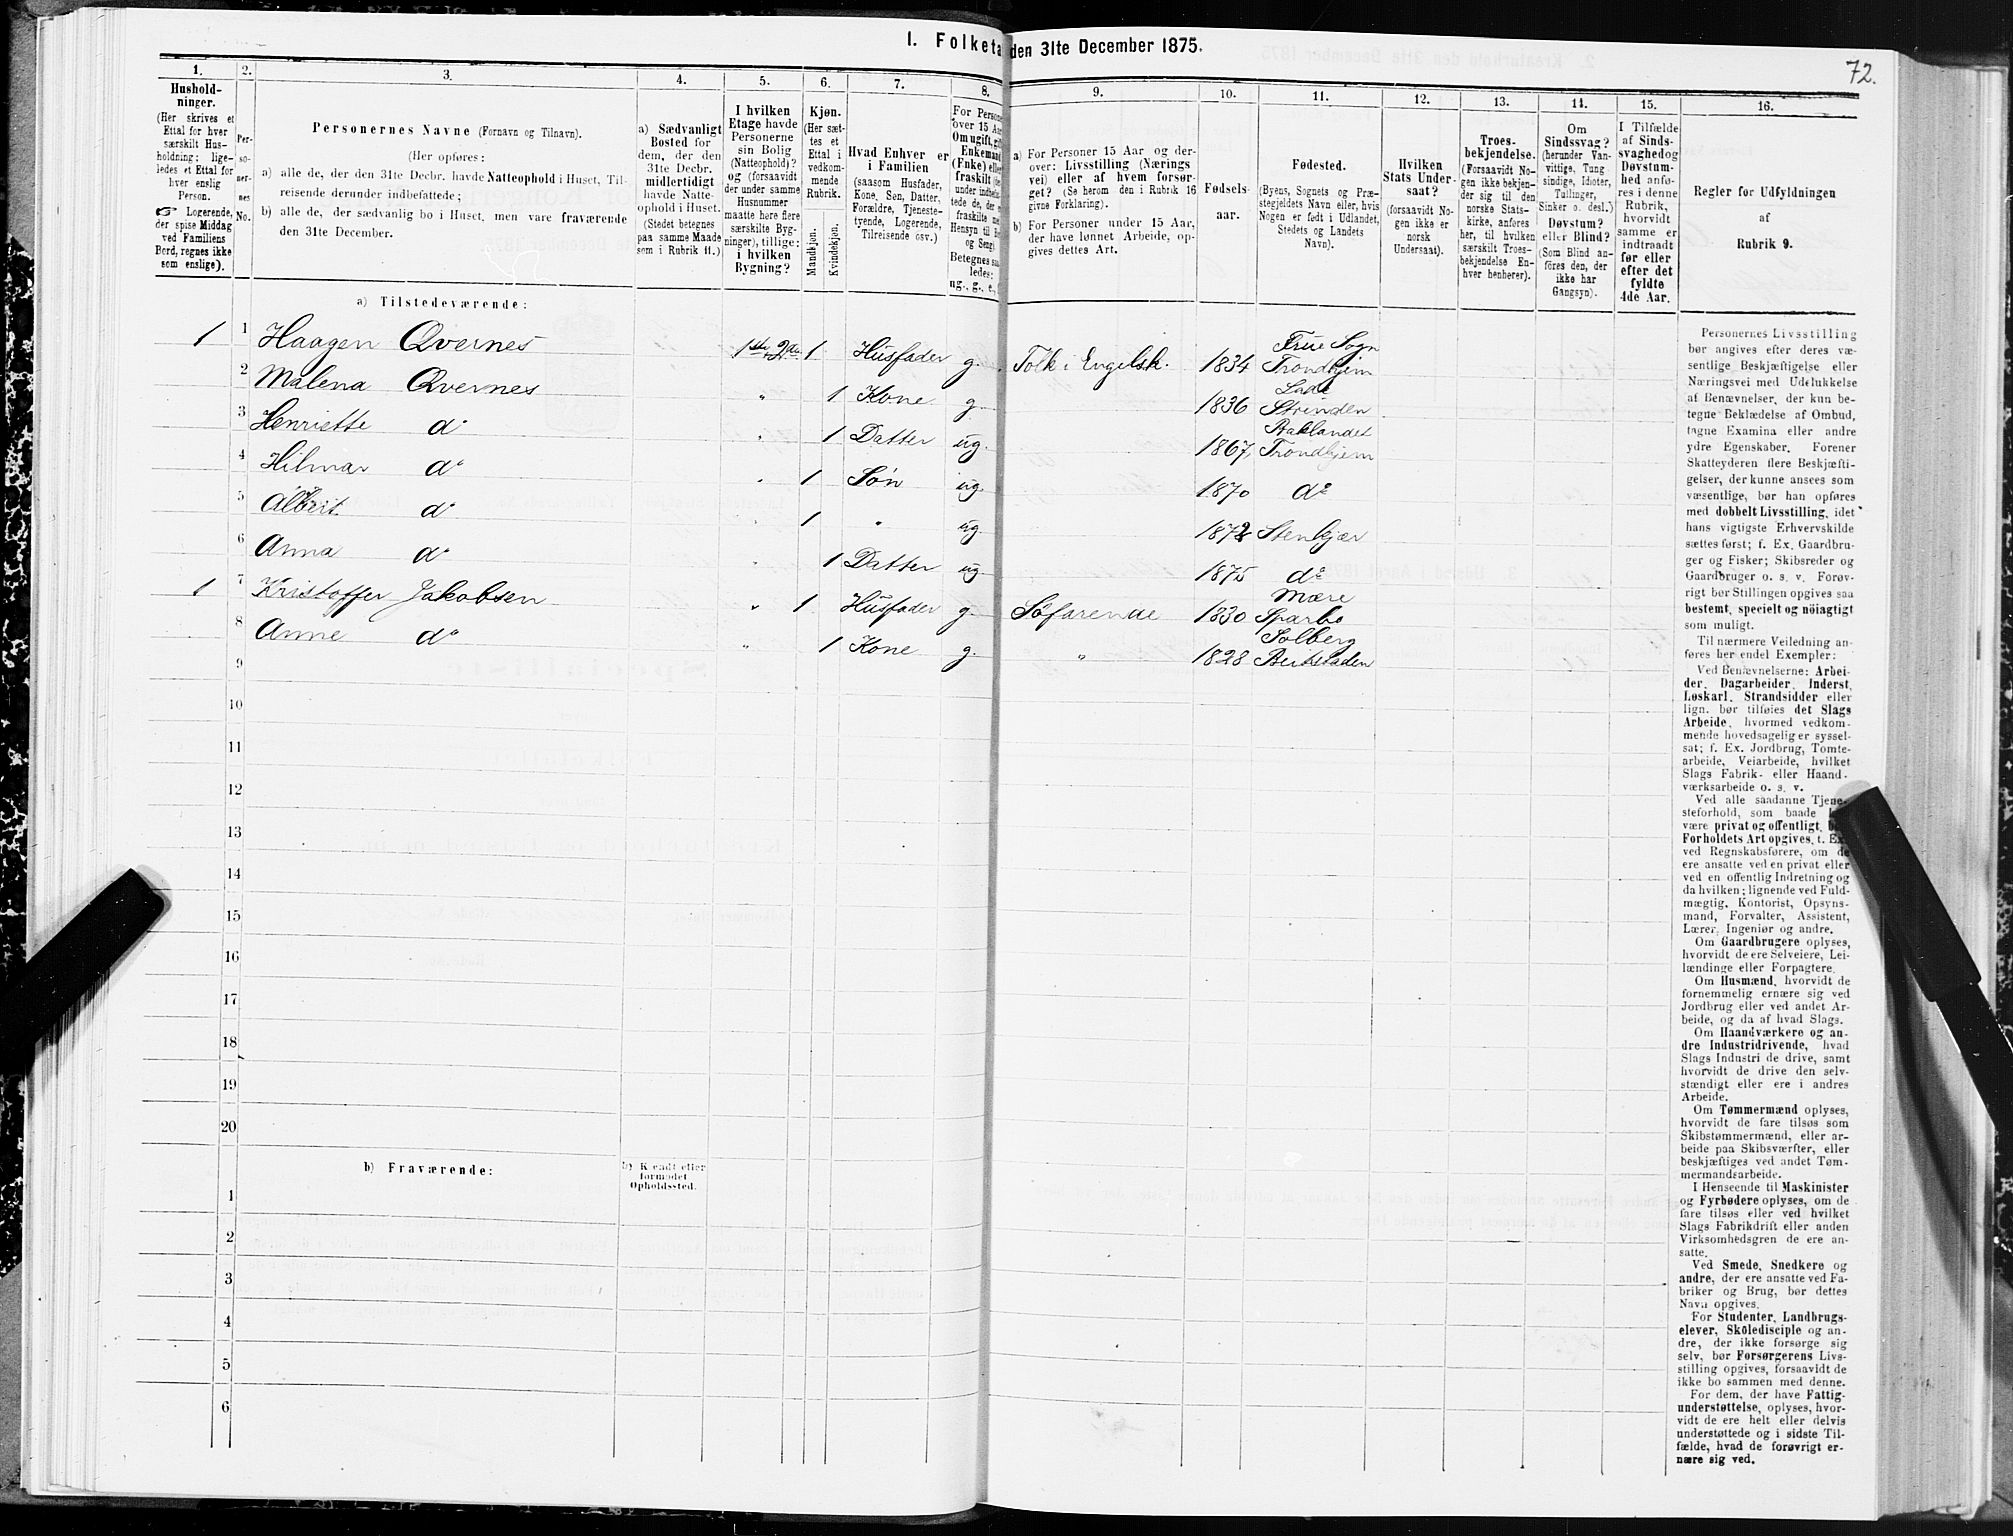 I. Folketa den 31te December 1875.
72.
1. 2. 3. 4. 5. 6. 7. 8. 9. 10. 11. 12. 13. 14. 15. 16.
Hushold-
ninger.
(Her skrives et
Ettal for hver
særskilt Hus-
holdning; lige-
ledes et Ettal for
hver enslig
Person.
☞ Logerende,
der spise Middag
ved Familiens
Bord, regnes ikke
som enslige).
Per-
so-
ner-
nes
No.
Personernes Navne (Fornavn og Tilnavn).
(Her opføres:
a) alle de, der den 31te Decbr. havde Natteophold i Huset, Til-
reisende derunder indbefattede;
b) alle de, der sædvanlig bo i Huset, men vare fraværende
den 31te December.
a) Sædvanligt
Bosted for
dem, der den
31te Decbr.
midlertidigt
havde Natte-
ophold i Huset.
(Stedet betegnes
paa samme Maade
som i Rubrik 11.)
I hvilken
Etage havde
Personerne
sin Bolig
(Natteophold)?
og (forsaavidt
der under samme
Husnummer
maatte høre flere
særskilte Byg-
ninger), tillige:
i hvilken
Bygning?
Kjøn.
(Her sæt-
tes et
Ettal i
vedkom-
mende
Rubrik.
Mandkjøn.
Kvindekjøn.
Hvad Enhver er
i Familien
(saasom Husfader,
Kone, Søn, Datter,
Forældre, Tjeneste-
tyende, Logerende,
Tilreisende osv.)
For Persone
over 15 Aa
Om ugift, gif
Enkemand
(Enke) elle
fraskilt (d
under indbe
tede de, der e
fraskilte m
Hensyn til Bo
og Seng)
Betegnes saa
ledes:
ug., g., e.,
a) For Personer 15 Aar og der-
over: Livsstilling (Nærings
vei) eller af hvem forsør-
get? (Se herom den i Rubrik 16
givne Forklaring).
b) For Personer under 15 Aar,
der have lønnet Arbeide, op-
gives dettes Art.
Fødsels-
aar.
Fødested.
(Byens, Sognets og Præ-
stegjeldets Navn eller, hvis
Nogen er født i Udlandet,
Stedets og Landets
Navn).
Hvilken
Stats Under-
saat?
(forsaavidt No-
gen ikke er
norsk
Undersaat).
Troes-
bekjendelse.
(Forsaavidt No-
gen ikke bekjen-
der sig til den
norske Stats-
kirke, anføres
her, til hvilken
særskilt Troes-
bekjendelse En-
hver henhører).
Om
Sindssvag?
(herunder Van-
vittige, Tung
sindige, Idioter,
Tullinger,
Sinker o. desl.)
Døvstum?
eller Blind?
(Som Blind an-
føres den, der
ikke har
Gangsyn).
I Tilfælde
af Sinds-
svaghed og
Døvstum-
hed anfø-
res i denne
Rubrik,
hvorvidt
samme er
indtraadt
før eller
efter det
fyldte
4de Aar.
Regler for Udfyldningen
af
Rubrik 9.
a) Tilstedeværende:
1 1 Haagen Qvernes 1 Husfader g. Tolk i Engelsk. 1834 Frue Sogn Trondhjem
2 Malena Qvernes " 1 Kone g 1836 Lade Strinden
3 Henriette do " 1 Datter ug. 1867 Baklandet Trondhjem
4 Hilmar do " 1 Søn ug. 1870 do
5 Albert do " 1 " ug. 1872 Stenkjær
6 Anna do " 1 Datter ug 1875 do
1 7 Kristoffer Jakobsen " 1 Husfader g. Søfarende 1830 Mære Sparbo
8 Anne do " 1 Kone g. " 1828 Solberg Beitstaden
9
10
11
12
13
14
15
16
17
18
19
20
b) Fraværende:
b) Kjendt eller
formodet
Opholdssted.
1
2
3
4
5
6
Personernes Livsstilling
bør angives efter deres væ-
sentlige Beskjæftigelse eller
Næringsvei med Udelukkelse
af Benævnelser, der kun be-
tegne Beklædelse af Ombud,
tagne Examina eller andre
ydre Egenskaber. Forener
Skatteyderen flere Beskjæfti-
gelser, der kunne ansees som
væsentlige, bør han opføres
med dobbelt Livsstilling, idet
hans vigtigste Erhvervskilde
sættes først; f. Ex. Gaardbru-
ger og Fisker; Skibsreder og
Gaardbruger o. s. v. Forøv-
rigt bør Stillingen opgives saa
bestemt, specielt og nöiagtigt
som muligt.
Til nærmere Veiledning an-
føres her endel Exempler:
Ved Benævnelserne: Arbei-
der, Dagarbeider, Inderst,
Løskarl, Strandsidder eller
lign. bør tilføies det Slags
Arbeide, hvormed vedkom-
mende hovedsagelig er syssel-
sat; f. Ex. Jordbrug, Tomte-
arbeide, Veiarbeide, hvilket
Slags Fabrik- eller Haand-
værksarbeide o. s. v.
Ved alle saadanne Tjene-
steforhold, som baade
være privat og offentligt,
Forholdets Art opgives, t. Ex
ved Regnskabsførere, om de
ere ansatte ved en privat eller
ved en offentlig Indretning og
da hvilken; lignende ved Fuld-
mægtig, Kontorist, Opsyns-
mand, Forvalter, Assistent,
Lærer, Ingeniør og andre.
Om Gaardbrugere oplyses,
hvorvidt de ere Selveiere, Lei-
lændinge eller Forpagtere.
Om Husmænd, hvorvidt de
fornemmelig ernære sig ved
Jordbrug eller ved andet Ar-
beide, og da af hvad Slags.
Om Haandværkere og an-
dre Industridrivende, hvad
Slags Industri de drive, samt
hvorvidt de drive den selv-
stændigt eller ere i andres
Arbeide.
Om Tømmermænd oplyses,
hvorvidt de fare tilsøs som
Skibstømmermænd, eller ar-
beide paa Skibsværfter, eller
beskjæftiges ved andet Tøm-
mermandsarbeide.
I Henseende til Maskinister
og Fyrbødere oplyses, om de
fare tilsøs eller ved hvilket
Slags Fabrikdrift eller anden
Virksomhedsgren de ere an-
satte.
Ved Smede, Snedkere og
andre, der ere ansatte ved Fa-
briker og Brug, bør dettes
Navn opgives.
For Studenter, Landbrugs-
elever, Skoledisciple og an-
dre, der ikke forsørge sig
selv, bør Forsørgerens Livs-
stilling opgives, forsaavidt de
ikke bo sammen med denne.
For dem, der have Fattig-
understøttelse, oplyses, hvor-
vidt de ere helt eller delvis
understøttede og i sidste Til-
fælde, hvad de forøvrigt er-
nære sig ved.